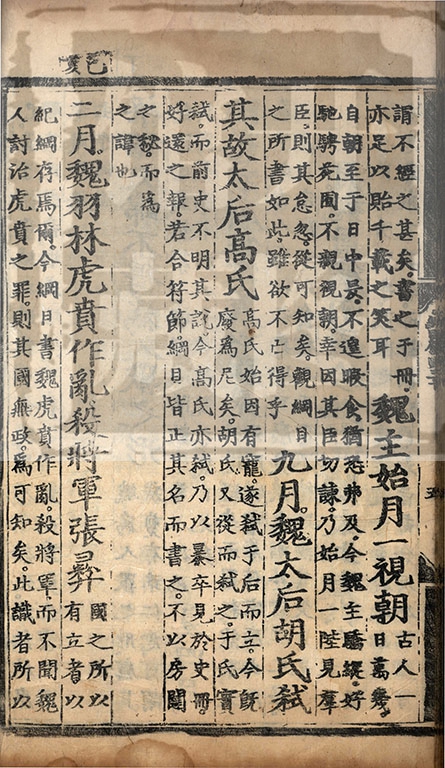 己亥
謂不經之甚矣書之于冊
亦足以貽千載之笑耳
魏主始月一視朝
古人一
日萬幾
自朝至于日中昃不遑暇食猶恐弗及今魏主驕縱好
馳騁苑囿不親視朝幸因其臣切諫乃始月一陛見羣
臣則其怠忽從可知矣觀綱目
之所書如此雖欲不已得乎
九月魏太后胡氏弒
其故太后高氏
高氏始因有寵遂弒于后而立今旣
廢爲尼矣胡氏又從而弒之于氏實
弒而前史不明其說今高氏亦弒乃以暴卒見於史冊
好還之報若合符節綱目皆正其名而書之不以房闥
之秘而爲
之諱也
二月魏羽林虎賁作亂殺將軍張彝
國之所以
有立者以
紀綱存焉爾今綱目書魏虎賁作亂殺將軍而不聞魏
人討治虎賁之罪則其國無政爲可知矣此識者所以